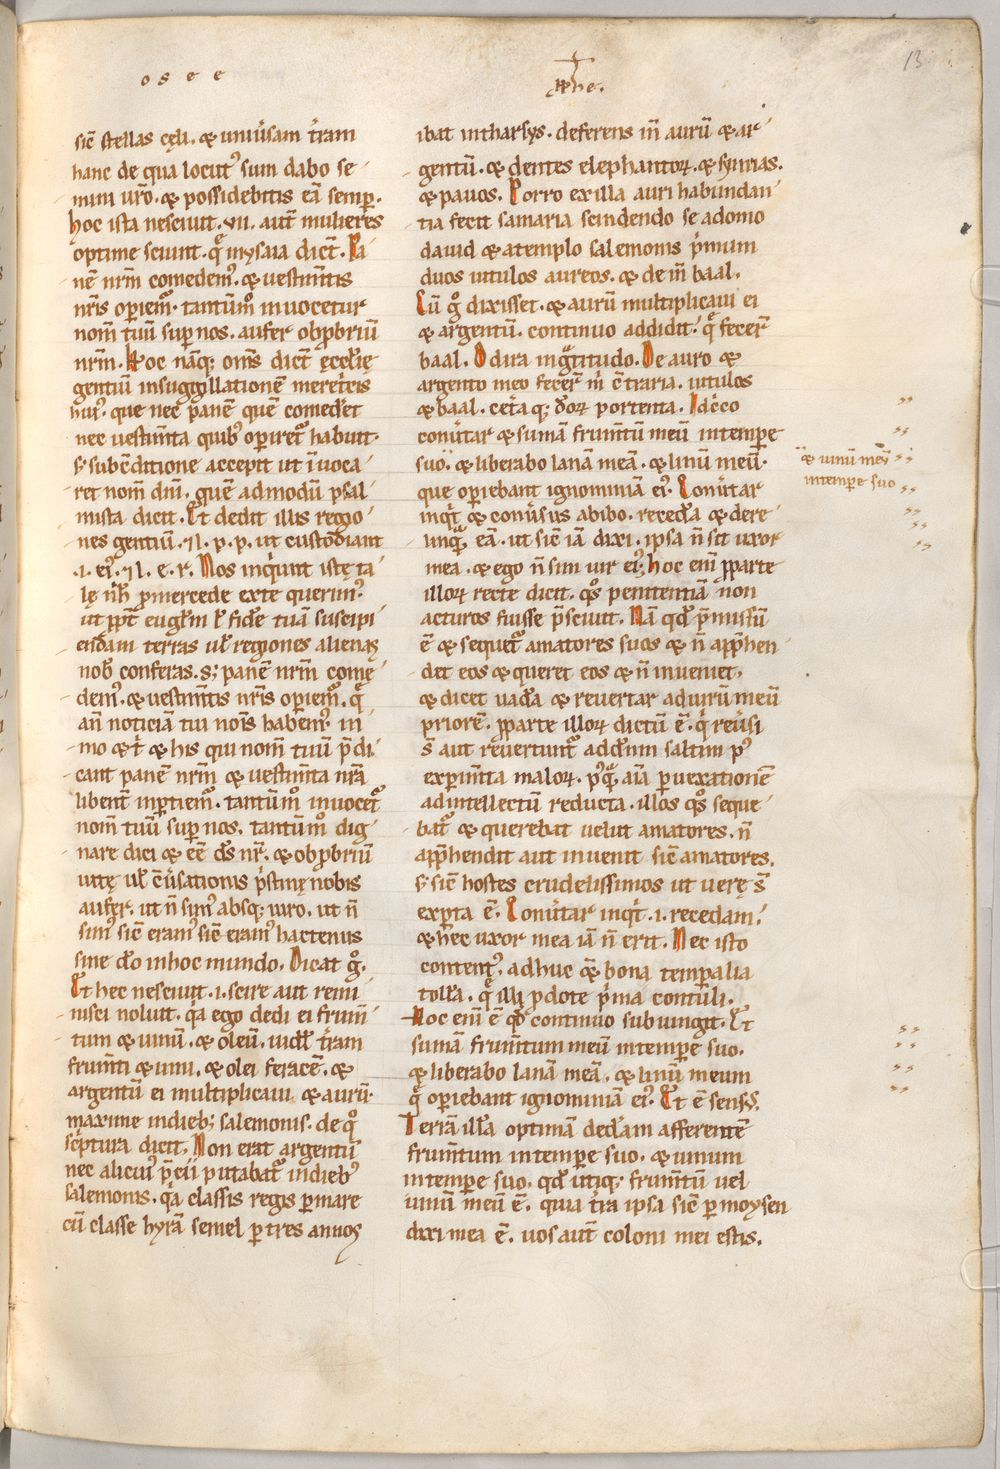 osee
ꝓphe.
13
sic̄ stellas cęli. & uniu̓sam t̓ram
hanc de qua locutꝰ sum dabo se
mini ur̄o. & possidebitis eā semp̲.
hoc ista nesciuit. vii. aut̄ mulieres
optime sciunt. q̄ in ysaia dict̄. Pa
nē nr̄m comedemꝰ. & uestim̄tis
nr̄is op̲iemꝰ. tantūmͦ inuocetur
nom̄ tuū sup̲ nos. aufer obp̲briū
nr̄m. Hoc nāq; om̄s dict̄ ęcclię
gentiū insuggillationē meret̓cis
huiꝰ. que nec panē quē comed̓et
nec uestim̄ta quibꝰ op̲iret᷑ habuit.
s; sub c̄ditione accepit ut īuoca
ret nom̄ dn̄i. quēadmodū psal
mista dicit. Et dedit illis regio
nes gentiū. ⁊ l. p. p. ut custodiant
.i. eiꝰ. ⁊ l. e. r. Nos inq̓unt istę ta
lę nich̄ p̱ mercede ex te querimꝰ.
ut pp̄t euḡlm ł fid̓e tuā suscipi
endam terras uł regiones alienas
nob̄ conferas. s; panē nr̄m comę
demꝰ. & uestim̄tis nr̄is op̲iemꝰ. q̄
an̄ noticiā tui nōis habem̓. in
mo & t̓ & his qui nom̄ tuū p̄di
cant panē nr̄m & uestim̄ta nr̄a
libent̄ inp̲tiemꝰ. tantūmͦ inuocet᷑
nom̄ tuū sup̲ nos. tantūmͦ dig
nare dici & eē d̄s nr̄. & obp̲briū
uitę uł c̄u̓sationis p̓stinę nobis
aufer. ut n̄ simꝰ absq; uiro. ut n̄
simꝰ sic̄ eramꝰ sic̄ eramꝰ hactenus
sine d̄o in hoc mundo. Dicat gͦ.
Et hec nesciuit. i. scire aut remi
nisci noluit. q̓a ego dedi ei frum̄
tum & uinū. & oleū. uid̓ł t̓ram
frum̄ti & uini. & olei feracē. &
argentū ei multiplicaui & aurū.
maxime in dieb; salemonis. de qͦ
sc̓ptura dicit. Non erat argentū
nec alicuiꝰ p̄cii putabat᷑ in diebꝰ
salemonis. q̓a classis regis p̲ mare
cū classe hyrā semel p̲ tres annos
ibat in tharsys. deferens in̄ aurū & ar
gentū. & dentes elephantoꝝ. & symias.
& pauos. Porro ex illa auri habundan
tia fecit samaria scindendo se a domo
dauid & a templo salemonis p̓mum
duos uitulos aureos. & dein̄ baal.
Cū gͦ dixisset. & aurū multiplicaui ei
& argentū. continuo addidit. q̄ fecer̄
baal. O dira ing̓titudo. De auro &
argento meo fecer̄ m̓ c̄traria. uitulos
& baal. cet̓aq; d̓oꝝ portenta. Idcͥco
conu̓tar & sumā frum̄tū meū in tempe
suo. & liberabo lanā meā. & linū meū.
que op̲iebant ignominiā eiꝰ. Conu̓tar
inq̓t & conu̓sus abibo. reced̓a & dere
linq̄ eā. ut sic̄ iā dixi. ipsa n̄ sit uxor
mea. & ego n̄ sim uir eiꝰ. hoc eni̅ p̲ parte
illoꝝ recte dicit. qͦs penitentiā non
acturos fuisse p̄sciuit. Nā qd̓ p̄missū
ē & sequet᷑ amatores suos & n̄ app̄hen
det eos & queret eos & n̄ inueniet.
& dicet uad̓a & reuertar ad uirū meū
priorē. p̲ parte illoꝝ dictū ē. q̓ reu̓si
s̄ aut reuertunt᷑ ad dn̄m saltim pꝰ
experim̄ta maloꝝ. pꝰq̄ aīa p̲ uexationē
ad intellectū reducta. illos qͦs seque
bat᷑ & querebat uelut amatores. n̄
app̄hendit aut inuenit sic̄ amatores.
s; sic̄ hostes crudelissimos ut uerę s̄
exp̲ta ē. Conu̓tar inq̓t. i. recedam.
& hec uxor mea iā n̄ erit. Nec isto
contentꝰ. adhuc q̄ bona temp̲alia
toll̓a. q̄ illi p̱ dote p̓ma contuli.
Hoc eni̅ ē qd̓ continuo subiungit. Et
sumā frum̄tum meū in tempe suo.
& liberabo lanā meā. & linū meum
q̄ op̲iebant ignominiā eiꝰ. Et ē sensꝰ.
Terrā illā optimā ded̓am afferentē
frum̄tum in tempe suo. & uinum
in tempe suo. qd̓ utiq; frum̄tū uel
uinū meū ē. quia t̓ra ipsa sic̄ p̲ moysen
dixi mea ē. uos aut̄ coloni mei estis.
& uinū meū
in tempe suo